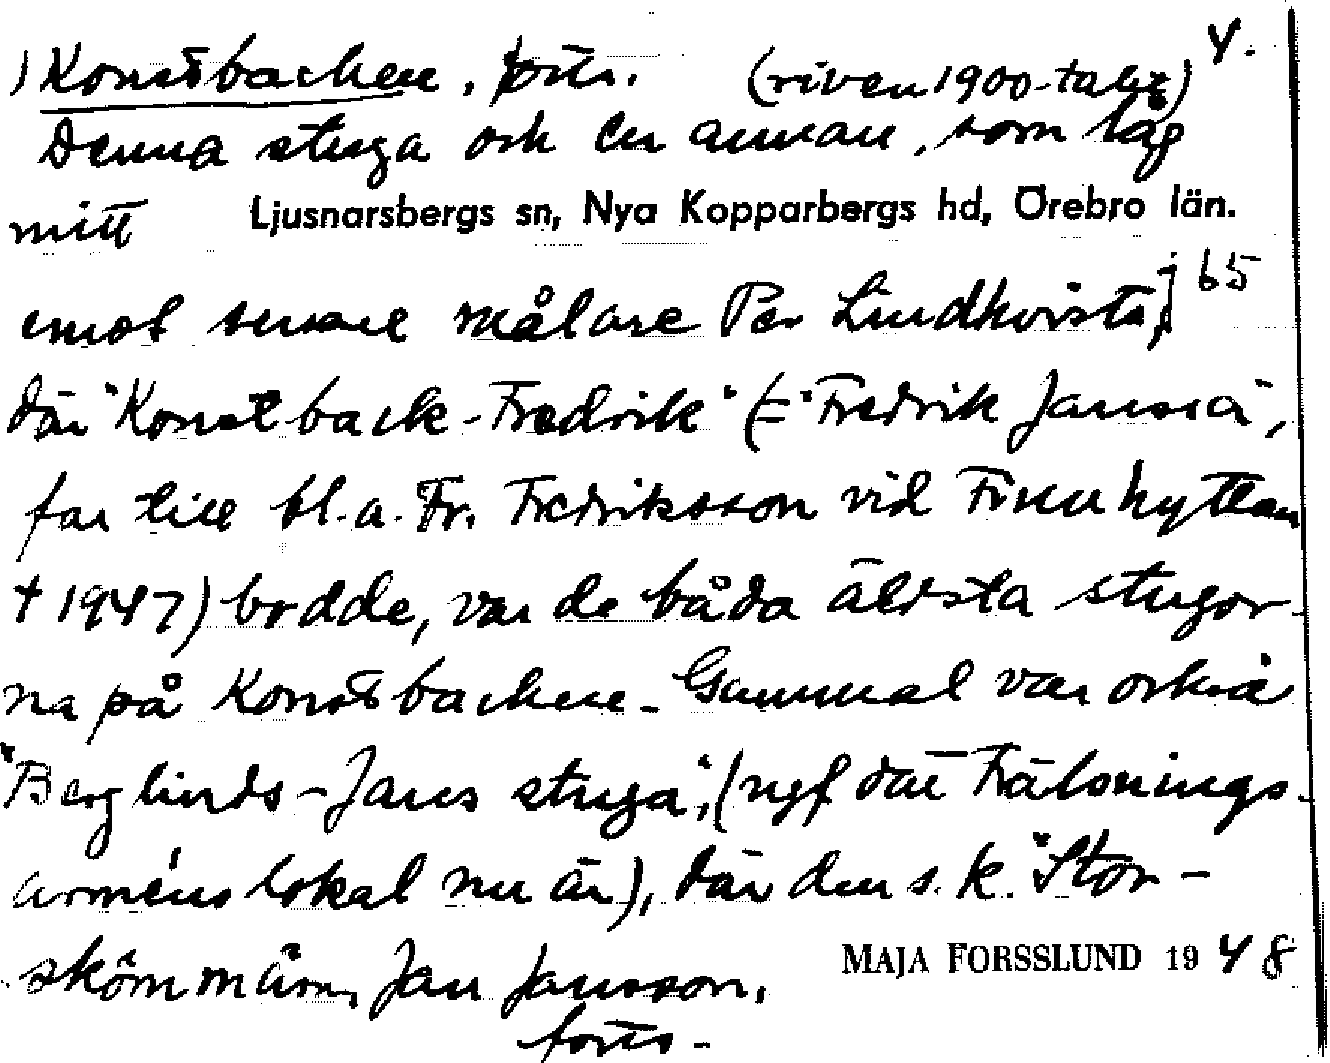 ) Konstbacken, forts. (riven 1900-talet) 4.
Denna stuga och en annan, som låg
mitt Ljusnarsbergs sn, Nya Kopparbergs hd, Örebro län.
emot senare målare Per Lindkvists, j 65
där "Konstback-Fredrik" (= "Fredrik Janssa",
far till bl.a. Fr. Fredriksson vid Finnhyttan
† 1947) bodde, var de båda äldsta stugor-
na på Konstbacken. Gammal var också
"Berglinds-Jans stuga", (ngf där Frälsnings-
arméns lokal nu är), där den s.k. "Stor-
skömmarn, Jan Jansson,
MAJA FORSSLUND 1948
forts.